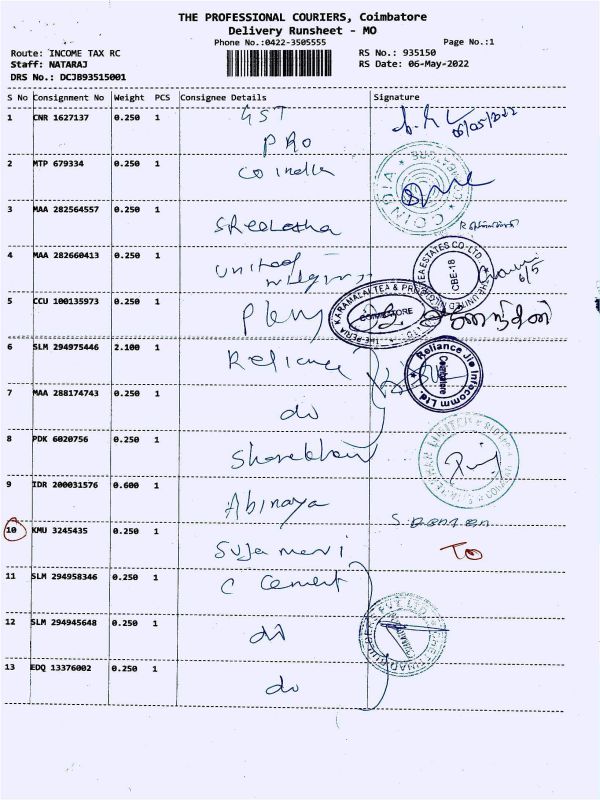 THE PROFESSIONAL COURIERS, Coimbatore
Delivery Runsheet - MO
Phone No.:0422-3505555 Page No.:1
Route: INCOME TAX RC RS No.: 935150
Staff: NATARAJ RS Date: 06-May-2022
DRS No.: DCJB93515001
S No Consignment No Weight PCS Consignee Details Signature
1 CNR 1627137 0.250 1 GST
PRO 06/05/2022
2 MTP 679334 0.250 1 Co india
COINDIA
3 MAA 282564557 0.250 1 Sreelatha
4 MAA 282660413 0.250 1 United
CBE-18 6/5
5 CCU 100135973 0.250 1
COIMBATORE
6 SLM 294975446 2.100 1 Reliance
Reliance Jio Infocomm Ltd. Coimbatore
7 MAA 288174743 0.250 1 do
8 PDK 6020756 0.250 1
9 IDR 200031576 0.600 1 Abinaya
10 KMU 3245435 0.250 1
TO
11 SLM 294958346 0.250 1 C Cement
12 SLM 294945648 0.250 1 do
13 EDQ 13376002 0.250 1 do